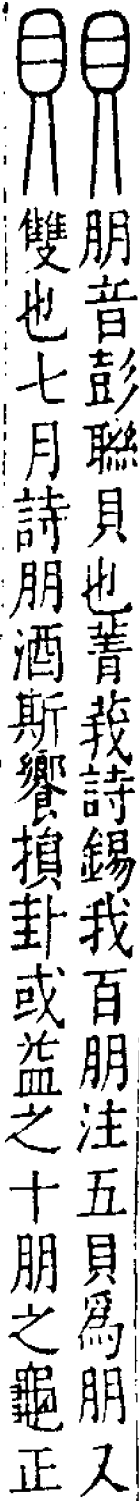 朋音彭聯貝也菁莪詩錫我百朋注五貝爲朋又
雙也七月詩朋酒斯饗損卦或益之十朋之龜正